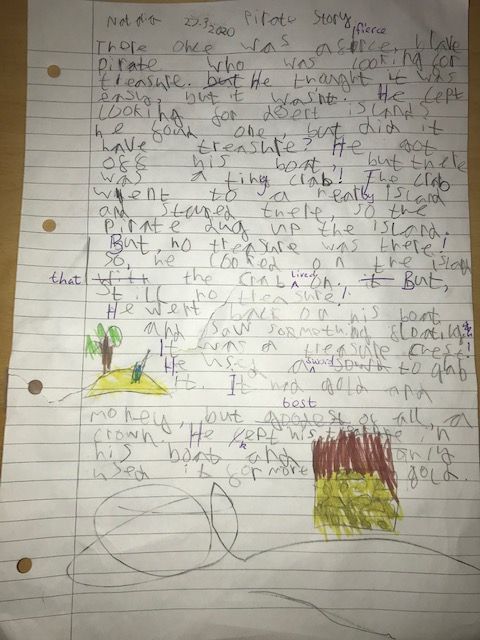 27.3.2020 Pirate Story
There once was a fierce, brave
pirate who was looking for
treasure. but He thought it was
easy, but it wasnt. He kept
looking for desert islands
he found one, but did it
have treasure? He got
off his boat, but there
was a tiny crab!! The crab
went to a nearby island
and stayed there, so the
pirate dug up the island.
But, no treasure was there!
So, he looked on the island
that with the crab lived on. it But,
still no treasure!
He went back on his boat
and saw somothing floating
It was a treasure chest!
He used a sword to grab
it. It had gold and
money, but best of all, a
crown. He kept his treasure in
his boat and only
used it for more gold.